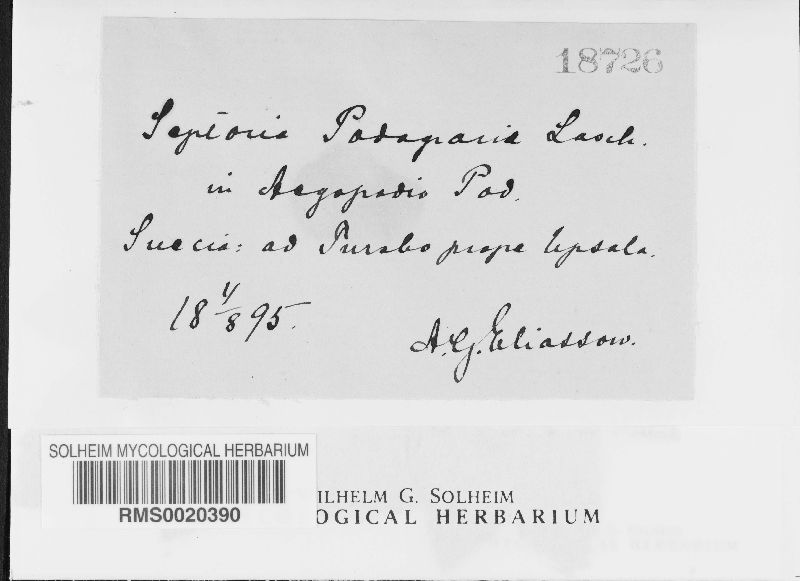 18726
Septoria Podagrariæ Lasch.
in Aegopodio Pod.
Suecia: ad Pursbo prope Upsala.
18 4/8 95.
A.G. Eliasson.
SOLHEIM MYCOLOGICAL HERBARIUM
RMS0020390
ILHELM G. SOLHEIM
OGICAL HERBARIUM